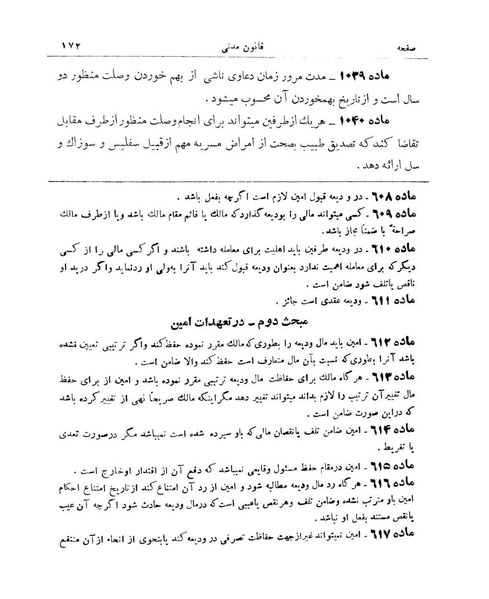 صفحه
قانون مدنی
۱۷۲
ماده ۱۰۳۹ ــ مدت مرور زمان دعاوی ناشی از بهم خوردن وصلت منظور دو
سال است و از تاریخ بهمخوردن آن محسوب میشود .
ماده ۱۰۴۰ ــ هریك از طرفین میتواند برای انجام وصلت منظور از طرف مقابل
تقاضا كند كه تصدیق طبیب بصحت از امراض مسریه مهم از قبیل سفلیس و سوزاك و
سل ارائه دهد .
ماده ۶۰۸ ـ در ودیعه قبول امین لازم است اگرچه بفعل باشد .
ماده ۶۰۹ ـ كسی میتواند مالی را بودیعه گذارد كه مالك یا قائم مقام مالك باشد ویا از طرف مالك
صراحة یا ضمناً مجاز باشد.
ماده ۶۱۰ ـ در ودیعه طرفین باید اهلیت برای معامله داشته باشند و اگر كسی مالی را از كسی
دیگر كه برای معامله اهمیت ندارد بعنوان ودیعه قبول كند باید آنرا بولی او رد نماید و اگر در ید او
ناقص یا تلف شود ضامن است .
ماده ۶۱۱ ـ ودیعه عقدی است جائز .
مبحث دوم ــ در تعهدات امین
ماده ۶۱۲ ـ امین باید مال ودیعه را بطوری كه مالك مقرر نموده حفظ كند و اگر ترتیبی تعیین نشده
باشد آنرا بطوری كه نسبت بآن مال متعارف است حفظ كند والا ضامن است .
ماده ۶۱۳ ـ هر گاه مالك برای حفاظت مال ودیعه ترتیبی مقرر نموده باشد و امین از برای حفظ
مال تغییر آن ترتیب را لازم بداند میتواند تغییر دهد مگر اینكه مالك صریحاً نهی از تغییر كرده باشد
كه در این صورت ضامن است .
ماده ۶۱۴ ـ امین ضامن تلف یا نقصان مالی كه باو سپرده شده است نمیباشد مگر در صورت تعدی
یا تفریط .
ماده ۶۱۵ ـ امین در مقام حفظ مسئول وقایعی نمیباشد كه دفع آن از اقتدار او خارج است .
ماده ۶۱۶ ـ هر گاه رد مال ودیعه مطالبه شود و امین از رد آن امتناع كند از تاریخ امتناع احكام
امین باو مترتب نشده وضامن تلف وهر نقص یا عیبی است كه در مال ودیعه حادث شود اگرچه آن عیب
یا نقص مستند بفعل او نباشد .
ماده ۶۱۷ ـ امین نمیتواند غیر از جهت حفاظت تصرفی در ودیعه كند یا بنحوی از انحاء از آن منتفع